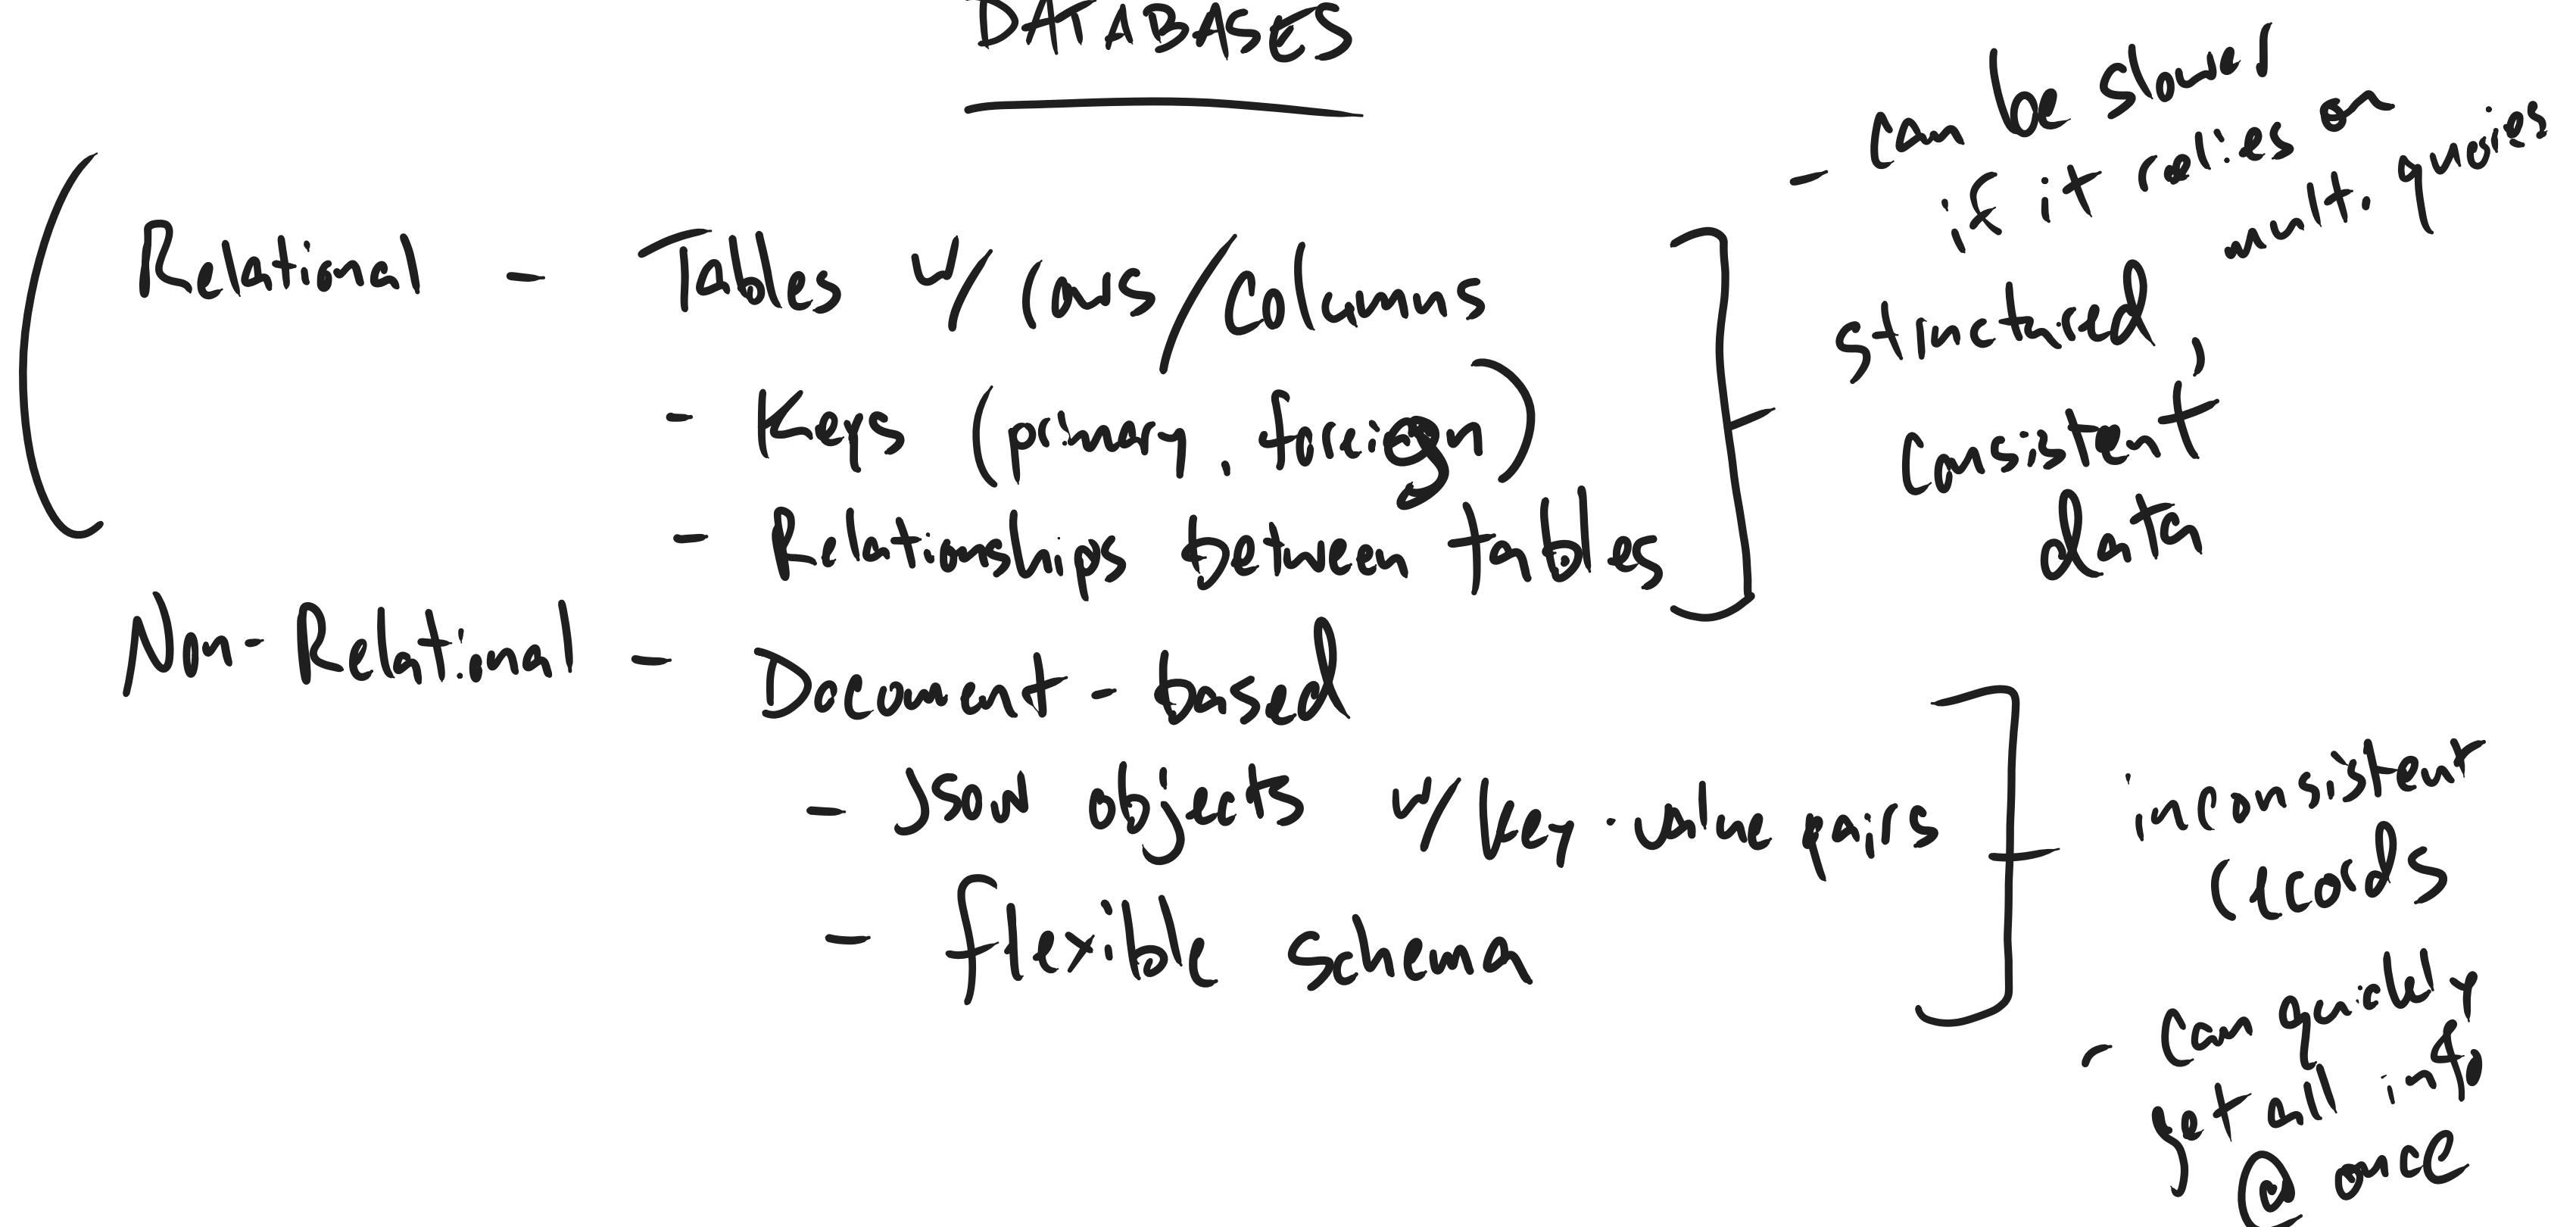 DATABASES
Relational - Tables w/ rows/columns
- Keys (primary, foreign)
- Relationships between tables
- can be slower
if it relies on
mult. queries
structured,
consistent
data
Non-Relational - Document-based
- JSON objects w/ key-value pairs
- flexible schema
inconsistent
records
- can quickly
get all info
@ once